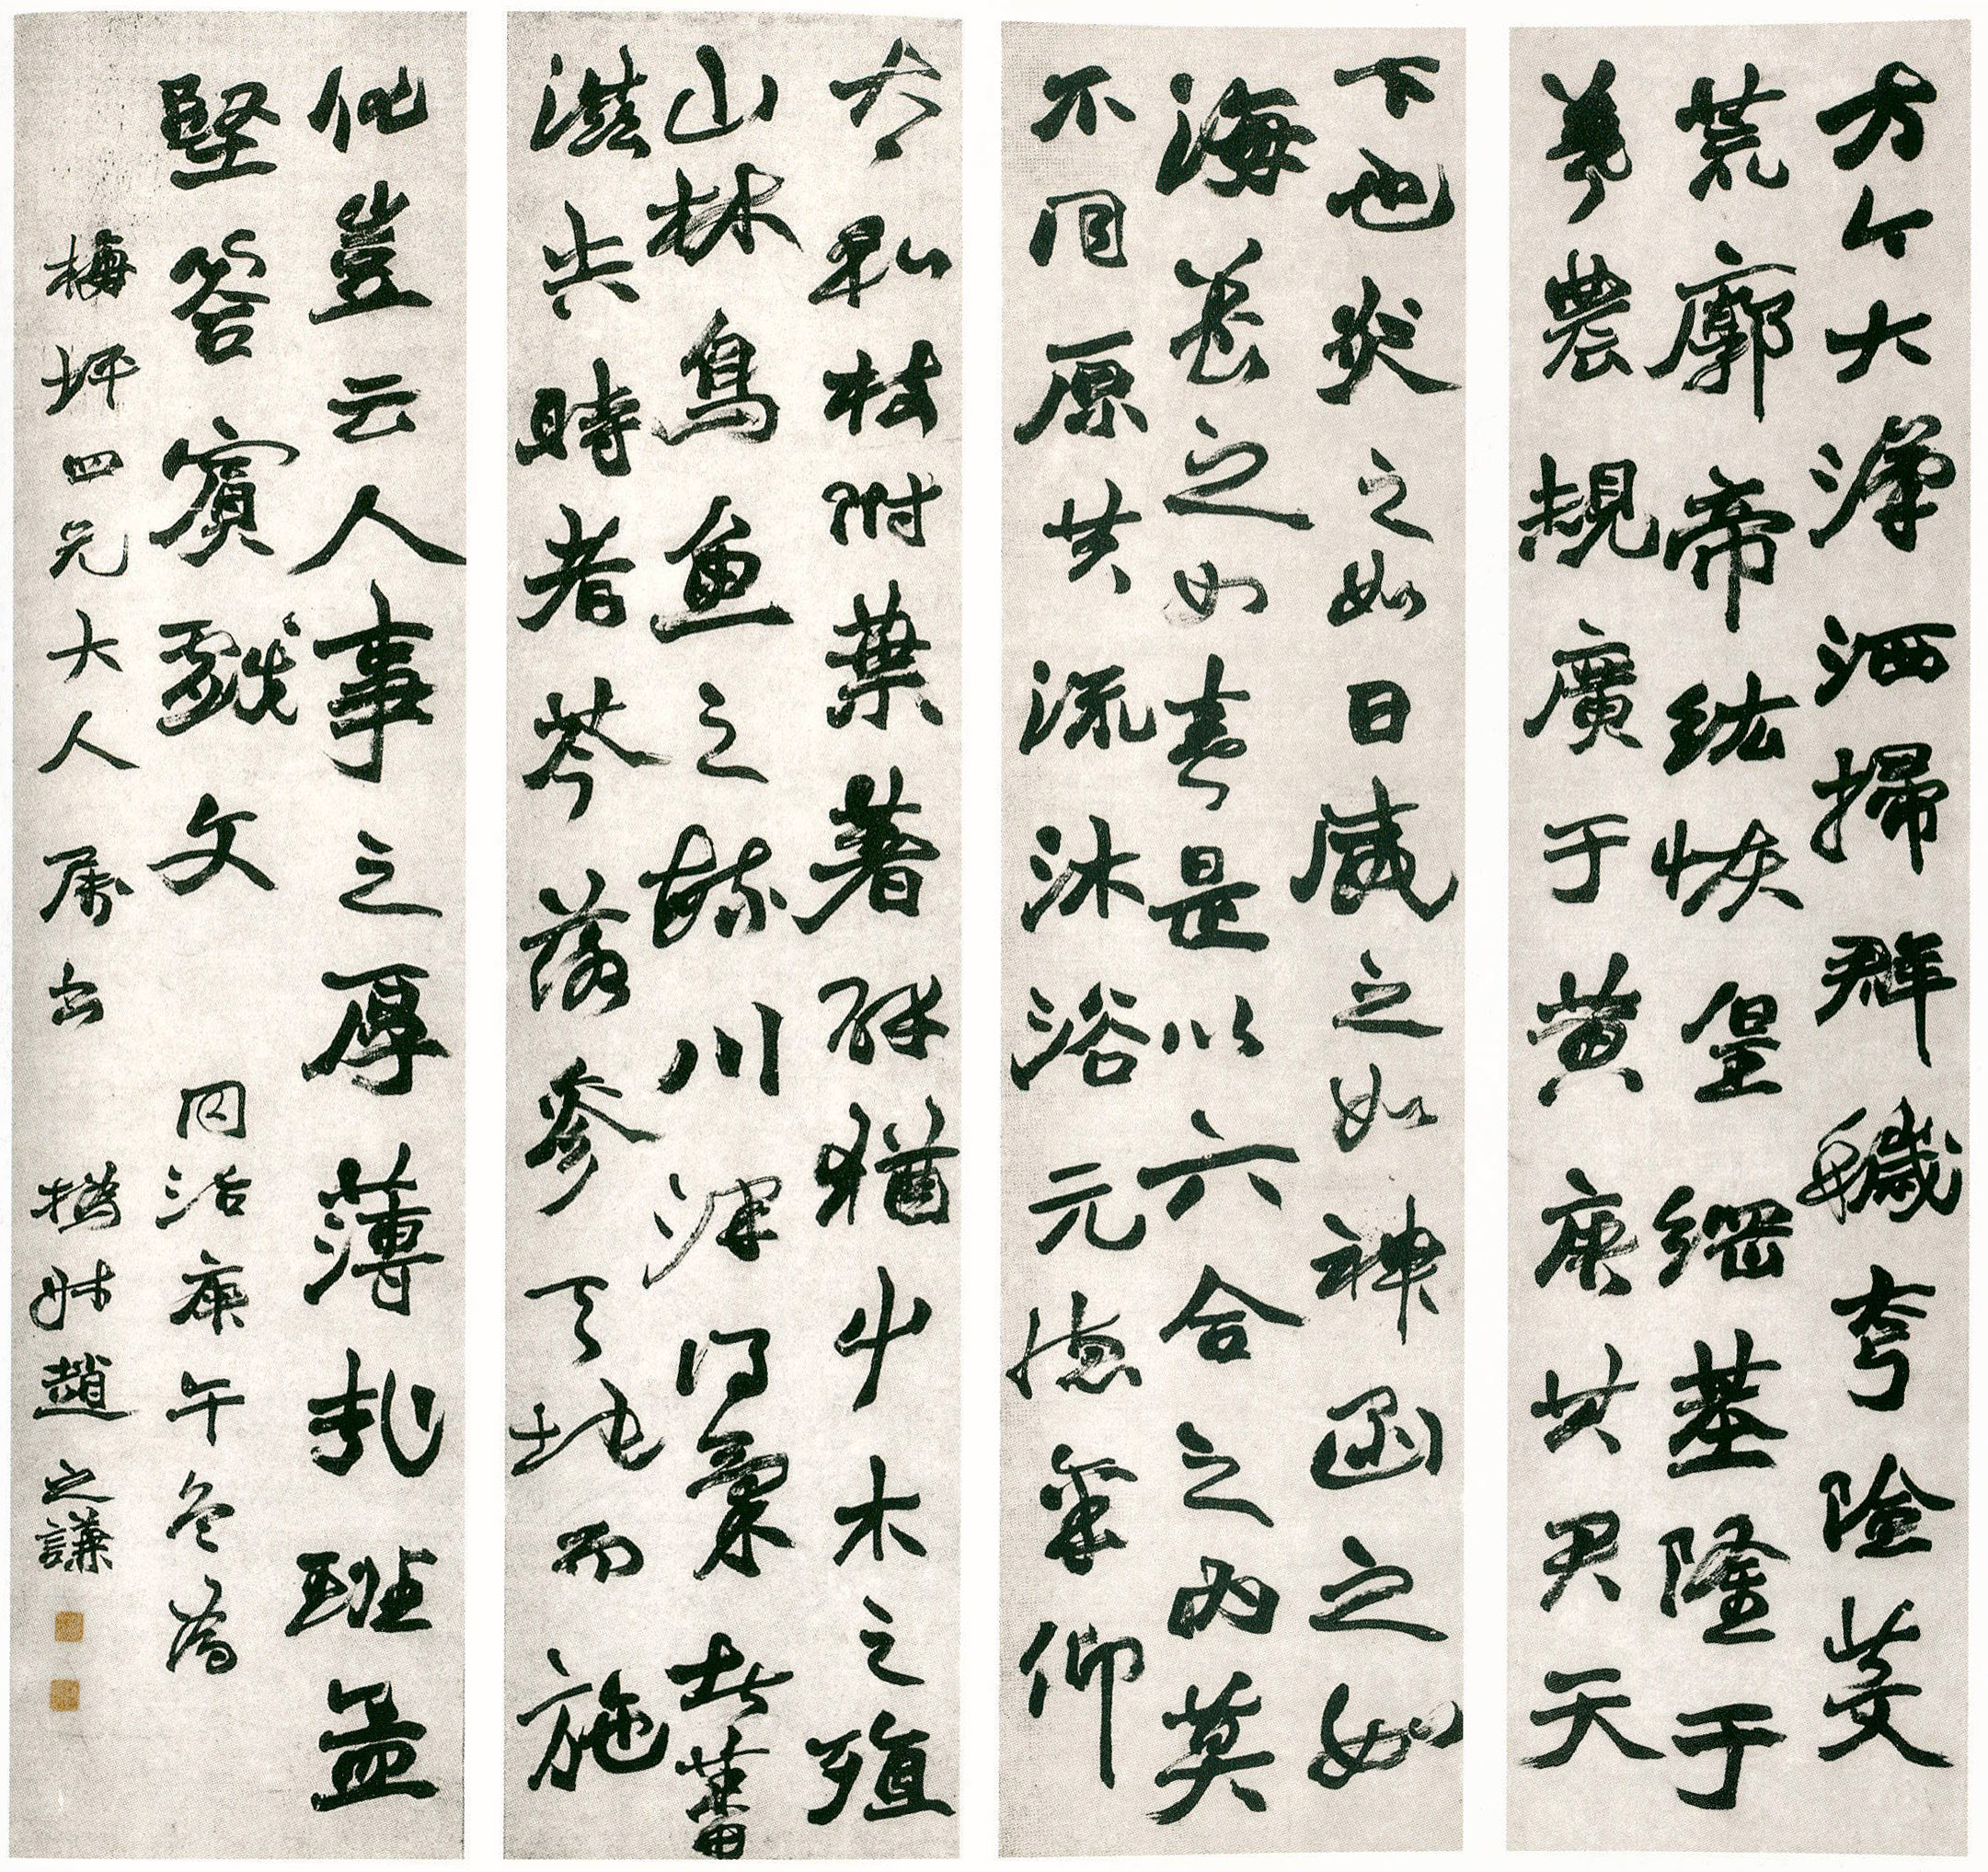 方今大漢洒掃群穢夸險芟
荒廓帝紘恢皇綱基隆于
羲農規廣于黃唐其君天
下也炎之如日威之如神函之如
海養之如春是以六合之內莫
不同原共流沐浴元德稟仰
太和枝附葉著辟猶屮木之殖
山林鳥魚之毓川澤得氣者蕃
滋失時者苓落參天地而施
化豈云人事之厚薄哉班孟
堅答賓戲文
同治庚午冬為
梅坪四兄大人属書
撝叔趙之謙